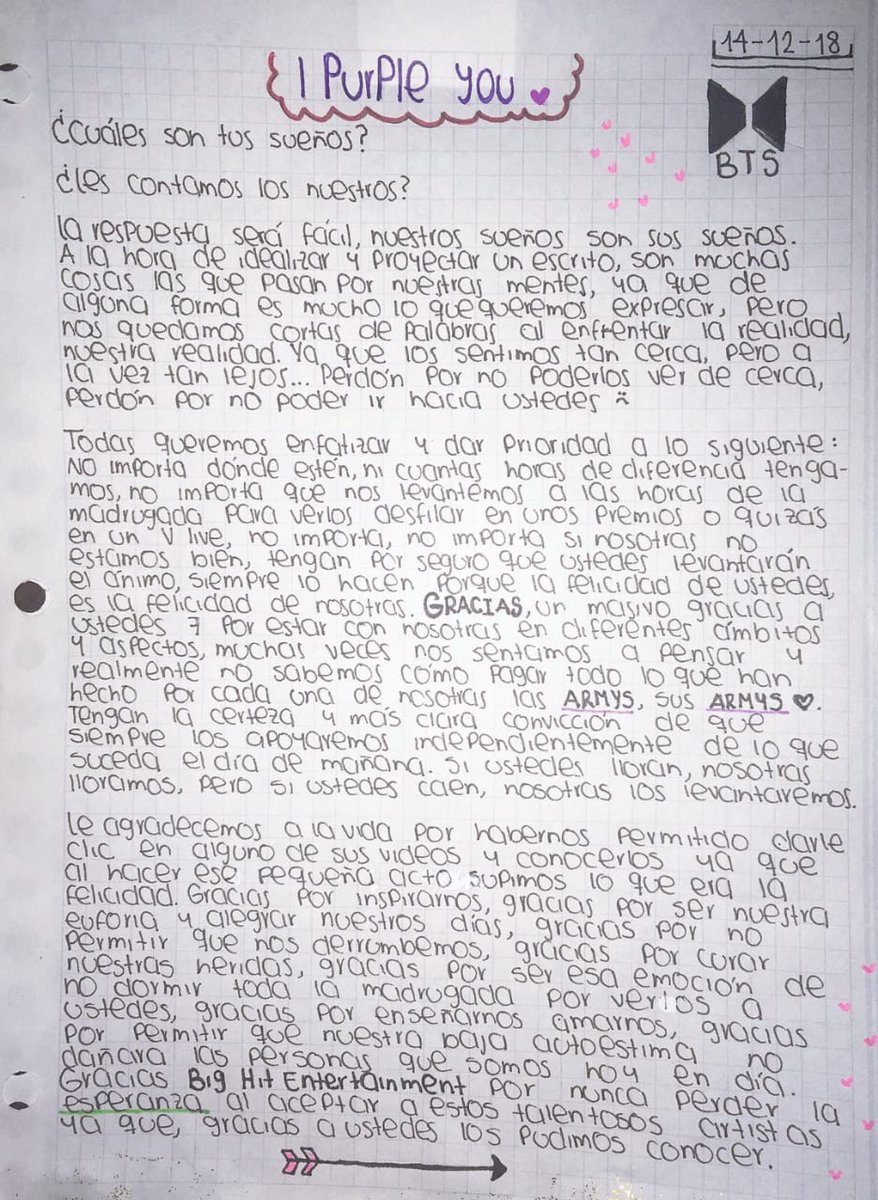 14-12-18
I PURPLE YOU
BTS
¿Cuáles son tus sueños?
¿les contamos los nuestros?
la respuesta será fácil, nuestros sueños son sus sueños.
A la hora de idealizar y proyectar un escrito, son muchas
cosas las que pasan por nuestras mentes, ya que de
alguna forma es mucho lo que queremos expresar, pero
nos quedamos cortas de palabras al enfrentar la realidad,
nuestra realidad. Ya que los sentimos tan cerca, pero a
la vez tan lejos... Perdón por no poderlos ver de cerca,
perdón por no poder ir hacia ustedes
Todas queremos enfatizar y dar prioridad a lo siguiente:
NO importa dónde estén, ni cuantas horas de diferencia tenga-
mos, no importa que nos levantemos a las horas de la
madrugada para verlos desfilar en unos premios o quizás
en un V live, no importa, no importa si nosotras no
estamos bien, tengan por seguro que ustedes levantarán
el ánimo, siempre lo hacen porque la felicidad de ustedes,
es la felicidad de nosotras. GRACIAS, un masivo gracias a
ustedes 7 por estar con nosotras en diferentes ámbitos
y aspectos, muchas veces nos sentamos a pensar y
realmente no sabemos cómo pagar todo lo que han
hecho por cada una de nosotras las ARMYS, sus ARMYS ♥.
Tengan la certeza y más clara convicción de que
siempre los apoyaremos independientemente de lo que
suceda el día de mañana. Si ustedes lloran, nosotras
lloramos, pero si ustedes caen, nosotras los levantaremos.
le agradecemos a la vida por habernos permitido darle
clic en alguno de sus videos y conocerlos ya que
al hacer ese pequeña acto supimos lo que era la
felicidad. Gracias por inspirarnos, gracias por ser nuestra
euforia y alegrar nuestros días, gracias por no
permitir que nos derrumbemos, gracias por curar
nuestras heridas, gracias por ser esa emoción de
no dormir toda la madrugada por verlos a
ustedes, gracias por enseñarnos amarnos, gracias
por permitir que nuestra baja autoestima no
dañara las personas que somos hoy en día.
Gracias Big Hit Entertainment por nunca perder la
esperanza al aceptar a estos talentosos artistas
ya que, gracias a ustedes los pudimos conocer.